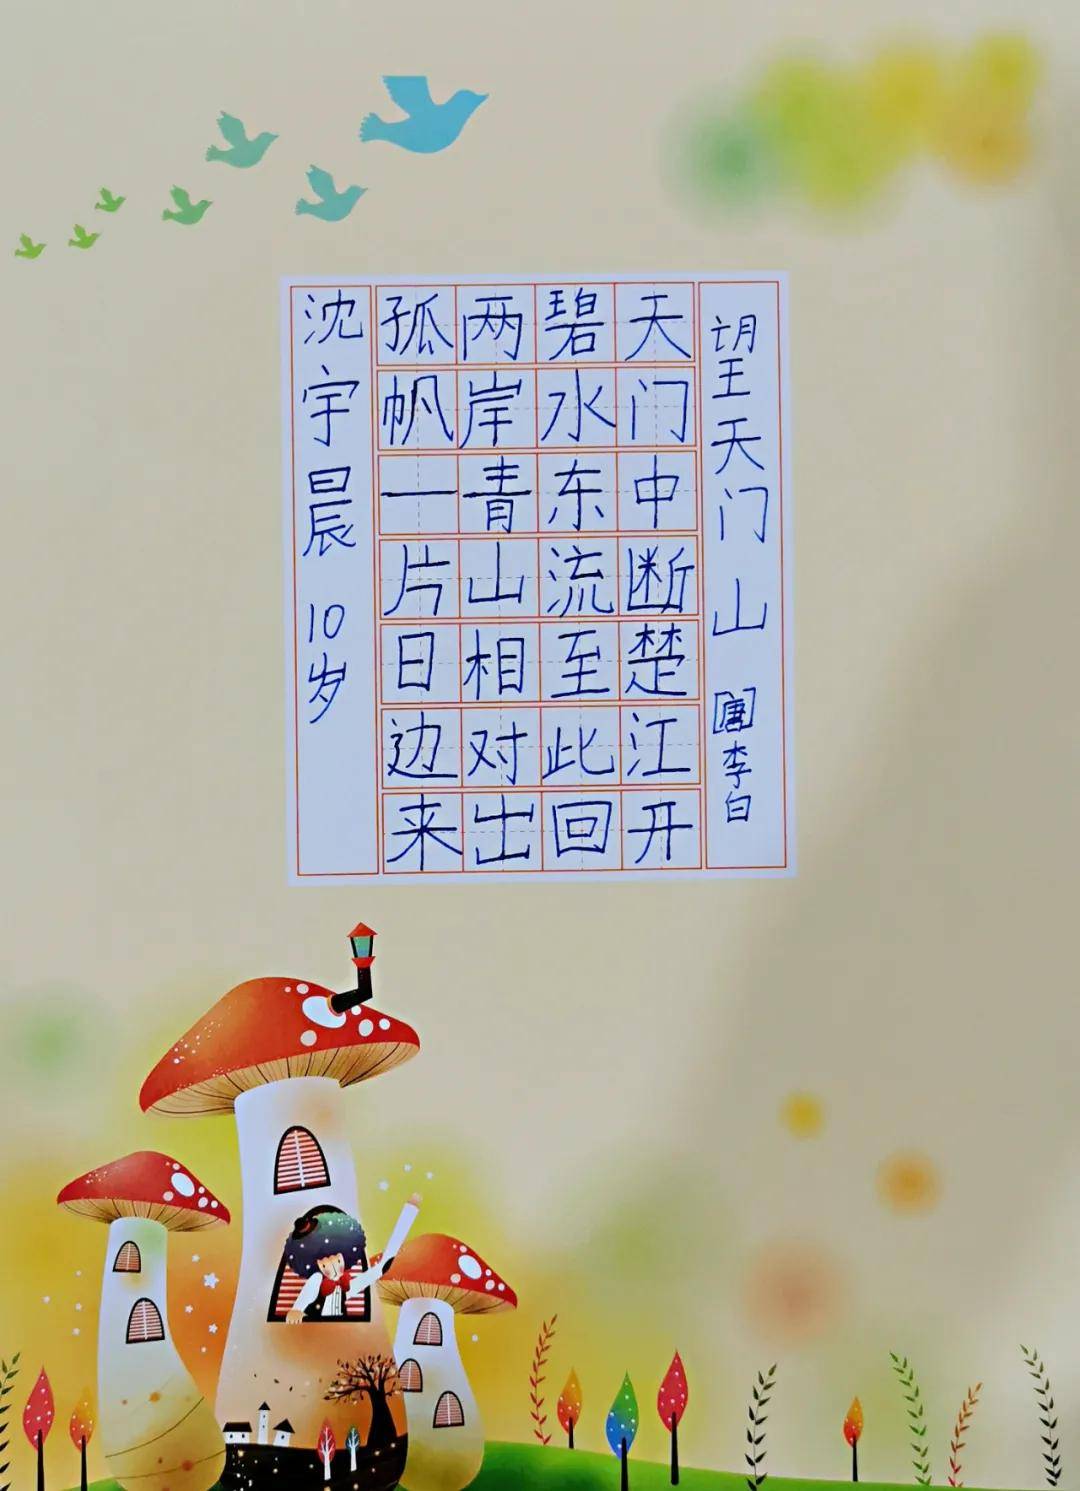 望天门山 [唐]李白
天门中断楚江开
碧水东流至此回
两岸青山相对出
孤帆一片日边来
沈宇晨 10岁